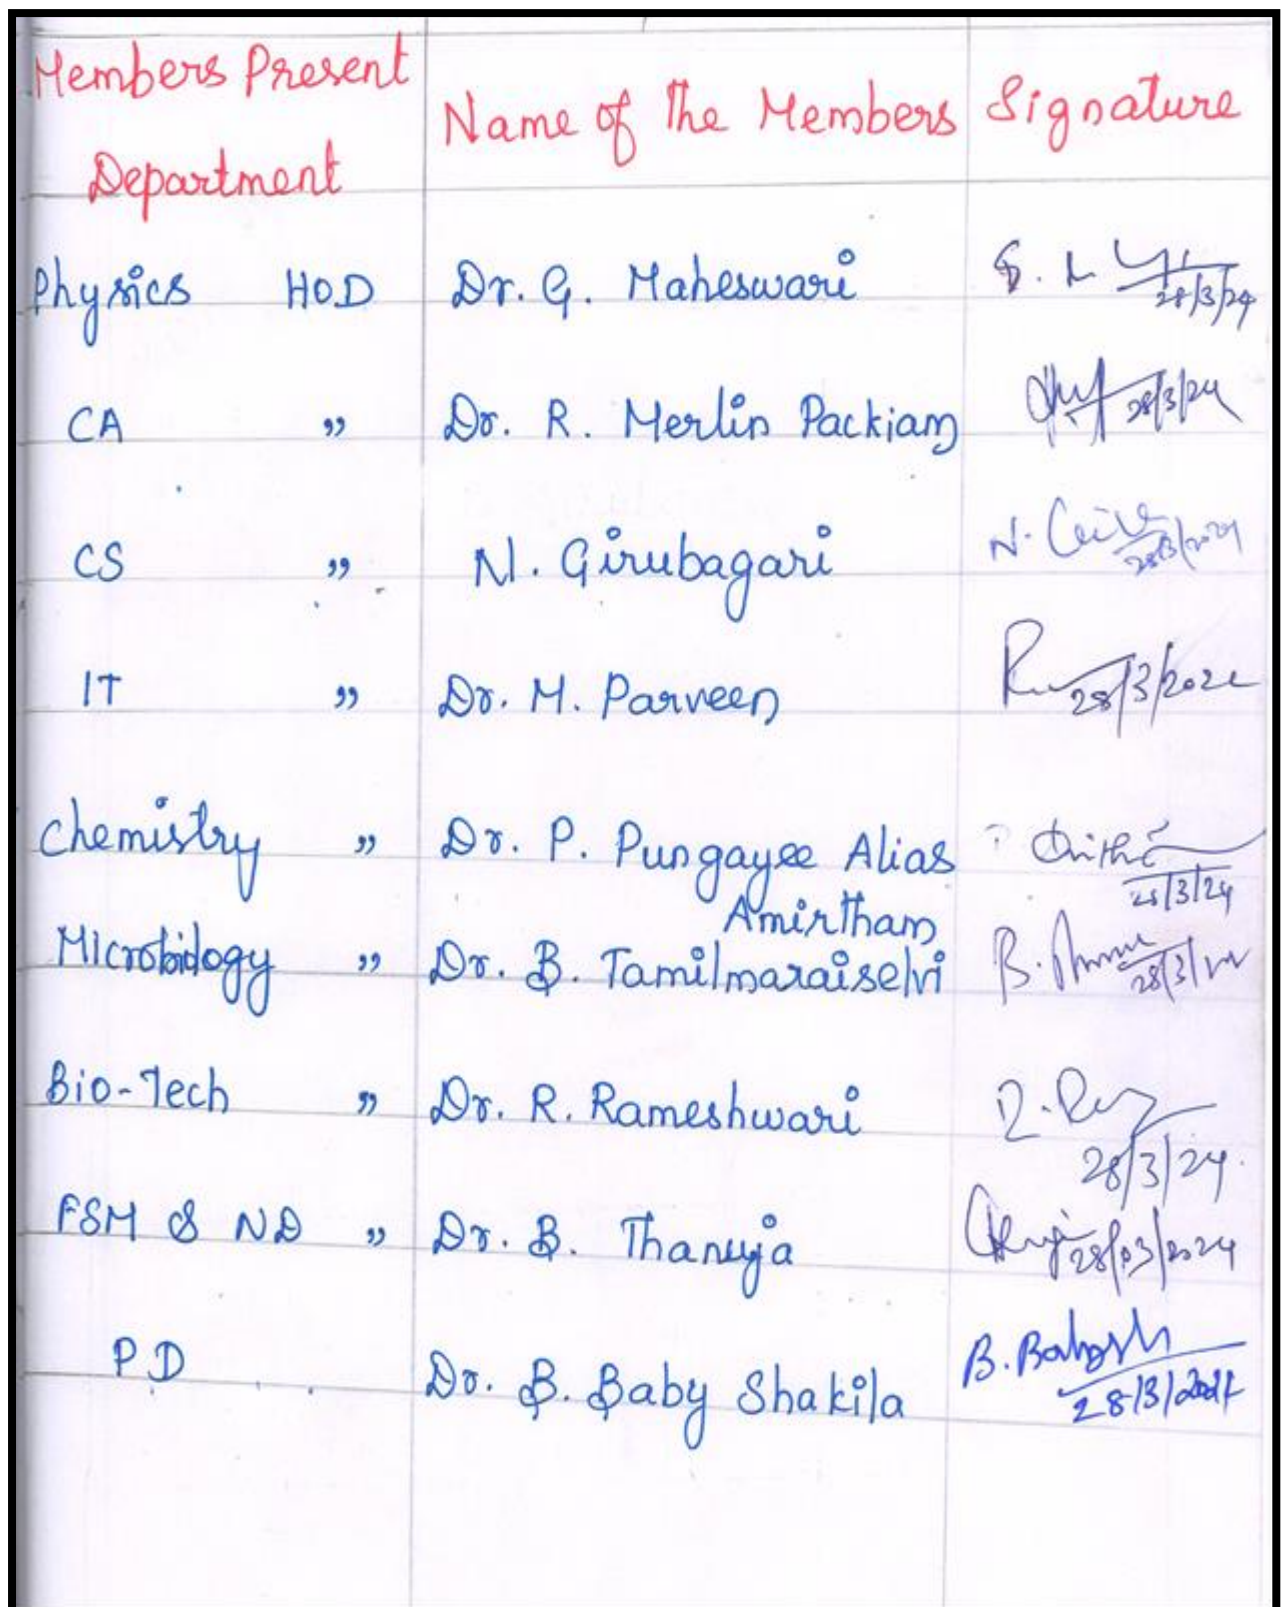 Members Present
Department Name of the Members Signature
Physics HOD Dr. G. Maheswari 28/3/24
CA " Dr. R. Merlin Packiam 28/3/24
CS " N. Girubagari N. 28/3/2024
IT " Dr. M. Parveen 28/3/202
Chemistry " Dr. P. Pungayee Alias
Amirtham 28/3/24
Microbiology " Dr. B. Tamilmaraiselvi B. 28/3/
Bio-Tech " Dr. R. Rameshwari R.
28/3/24
FSM & ND " Dr. B. Thanuja 28/03/2024
P D Dr. B. Baby Shakila B.
28/3/2024